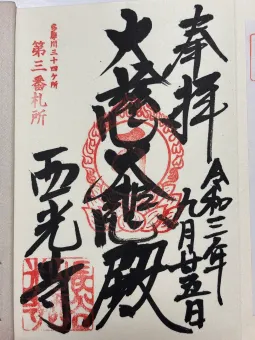 奉拝
令和三年
九月廿五日
大慈大悲殿
多摩川三十四ヶ所
第三番札所
西光寺